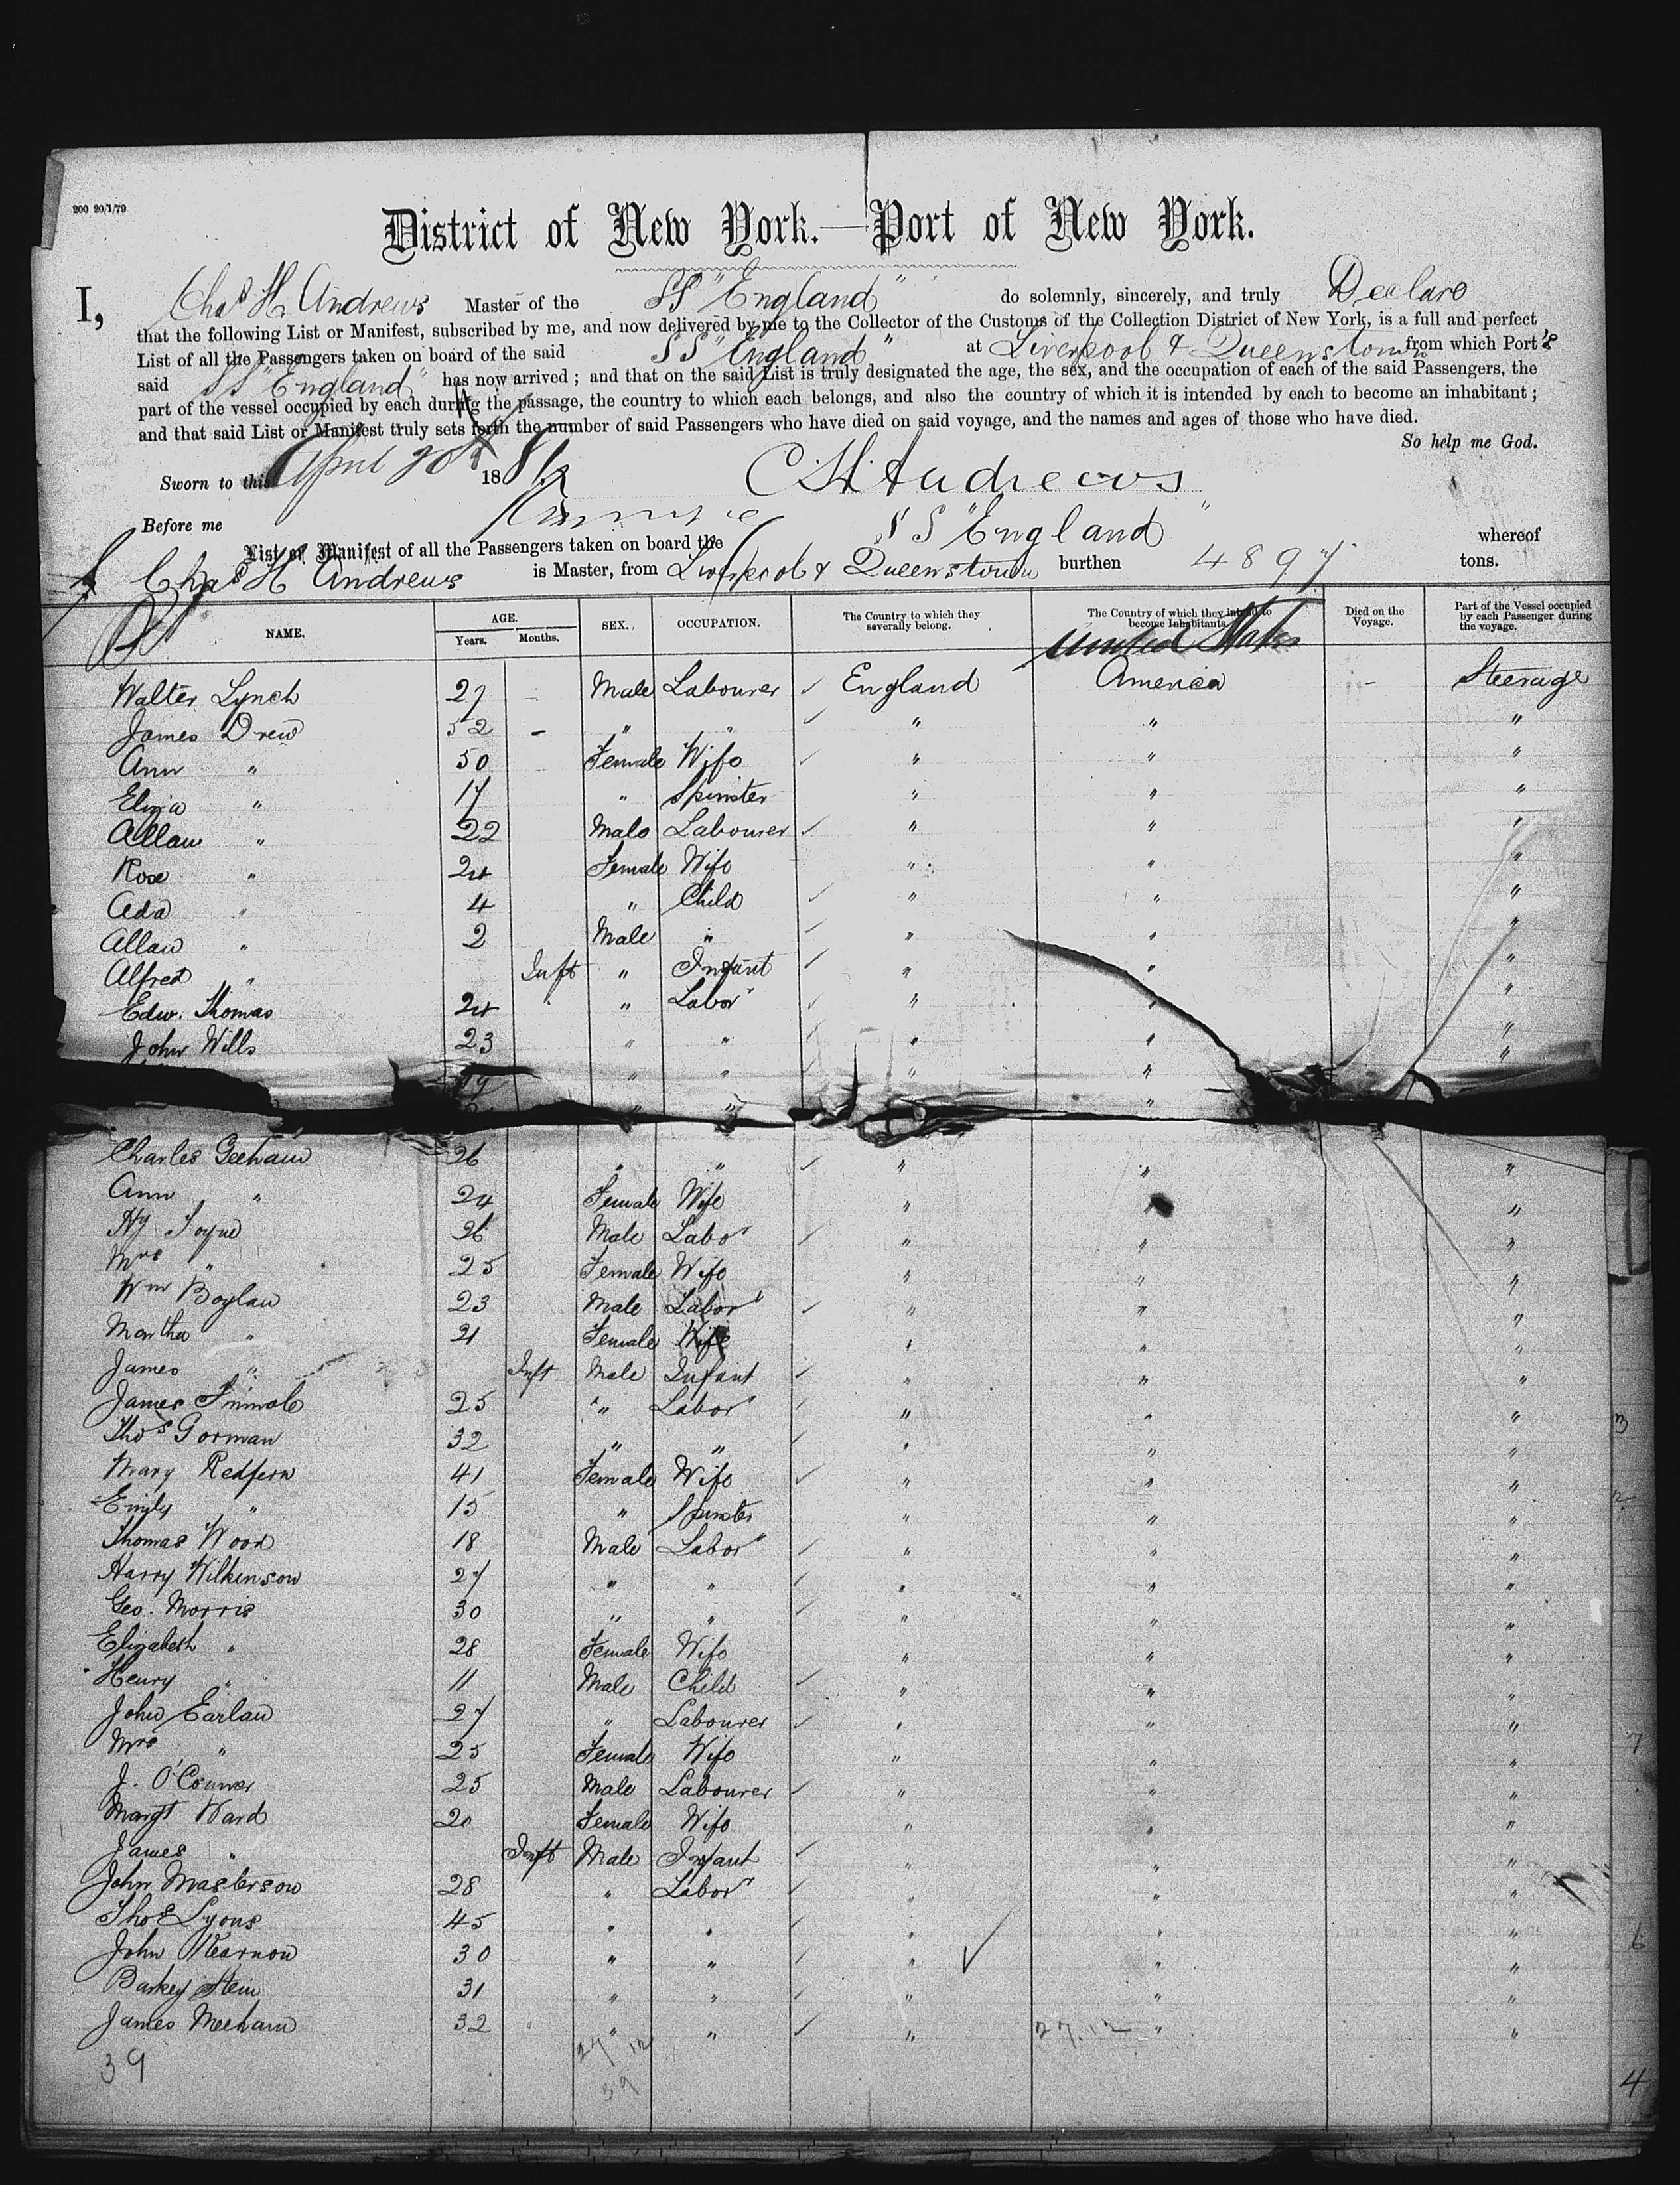 200 20/1/79
District of New York.—Port of New York.
I, Chas H Andrews Master of the SS "England" do solemnly, sincerely, and truly Declare
that the following List or Manifest, subscribed by me, and now delivered by me to the Collector of the Customs of the Collection District of New York, is a full and perfect
List of all the Passengers taken on board of the said SS "England" at Liverpool & Queenstown from which Port's
said SS "England" has now arrived; and that on the said List is truly designated the age, the sex, and the occupation of each of the said Passengers, the
part of the vessel occupied by each during the passage, the country to which each belongs, and also the country of which it is intended by each to become an inhabitant;
and that said List or Manifest truly sets forth the number of said Passengers who have died on said voyage, and the names and ages of those who have died.
So help me God.
Sworn to this April 20th 188 C H Andrews
Before me
List or Manifest of all the Passengers taken on board the SS "England" whereof
Chas H Andrews is Master, from Liverpool & Queenstown burthen 4897 tons.
NAME. AGE. Years. Months. SEX. OCCUPATION. The Country to which they severally belong. The Country of which they intend to become Inhabitants. Died on the Voyage. Part of the Vessel occupied by each Passenger during the voyage.
United States
Walter Lynch 27 - Male Labourer ✓ England America - Steerage
James Drew 52 - " " ✓ " " "
Ann " 50 Female Wife ✓ " " "
Eliza " 17 " Spinster " " "
Allan " 22 Male Labourer ✓ " " "
Rose " 24 Female Wife " " "
Ada " 4 " Child ✓ " " "
Allan " 2 Male " ✓ " " "
Alfred " Inft " Infant ✓ " " "
Edw. Thomas 24 " Labor ✓ " " "
John Wills 23 " " ✓ " " "
19 " " " " "
" " "
Charles Geehan 26 " " ✓ " " "
Ann " 24 Female Wife " " "
Hy Toyne 26 Male Labor ✓ " " "
Mrs " 25 Female Wife " " "
Wm Boylan 23 Male Labor ✓ " " "
Martha " 21 Female Wife " " "
James " Inft Male Infant ✓ " " "
James 25 " Labor ✓ " " "
Thos Gorman 32 " " ✓ " " "
Mary Redfern 41 Female Wife ✓ " " "
Emily " 15 " Spinster " " "
Thomas Wood 18 Male Labor ✓ " " "
Harry Wilkinson 27 " " ✓ " " "
Geo. Morris 30 " " ✓ " " "
Elizabeth " 28 Female Wife " " "
Henry " 11 Male Child ✓ " " "
John Earlan 27 " Labourer ✓ " " "
Mrs " 25 Female Wife " " "
J. O'Conner 25 Male Labourer ✓ " " "
Margt Ward 20 Female Wife " " "
James " Inft Male Infant ✓ " " "
John Masterson 28 " Labor ✓ " " "
Thos Lyons 45 " " ✓ " " "
John Kearnon 30 " " ✓ " ✓ " "
Barkey Stein 31 " " ✓ " " "
James Meehan 32 " " ✓ " 27.12 " "
39 27 12
39
3
7
6
4